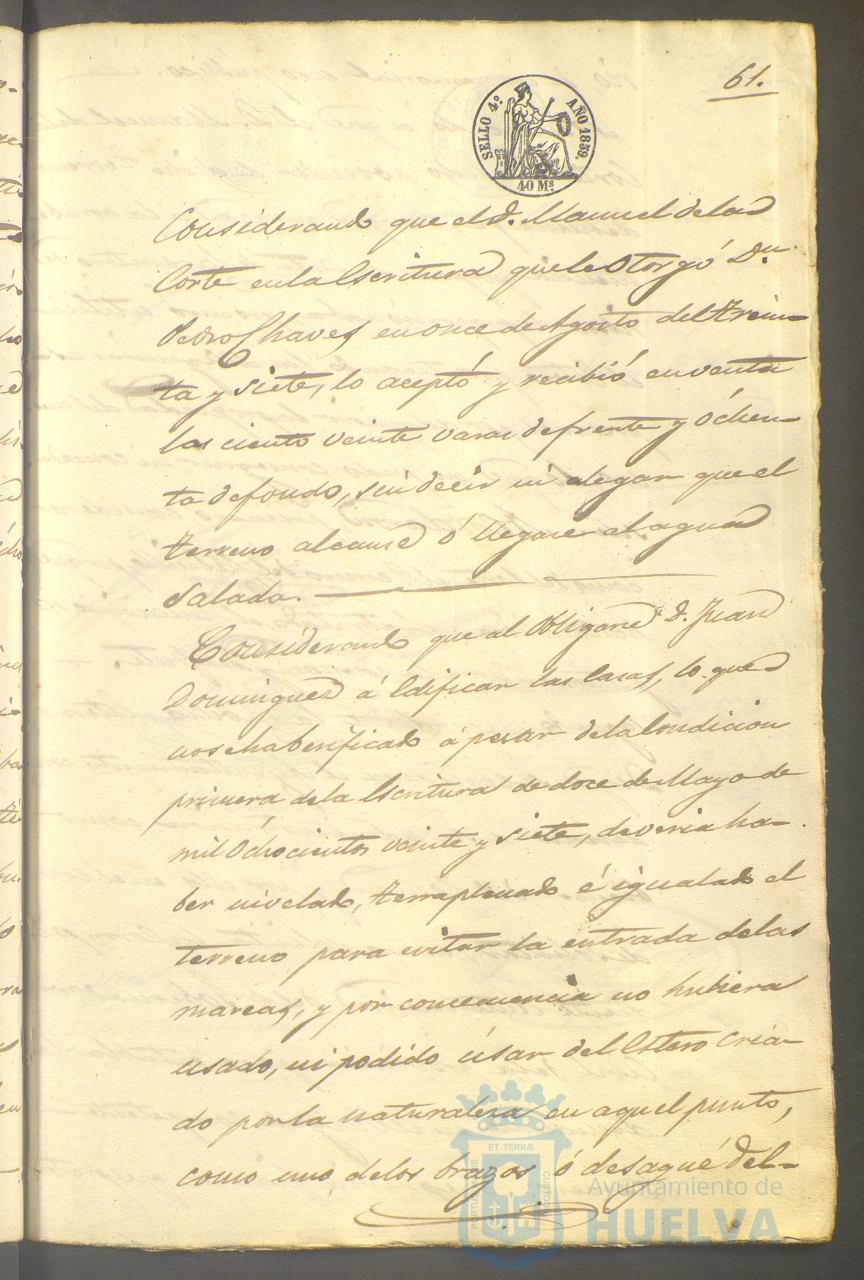 61.
SELLO 4º AÑO 1859.
40 Ms
Considerando que el D. Manuel de la
Corte en la Escritura que le Otorgó Dn.
Pedro Chaves en once de Agosto del trein-
ta y siete, lo aceptó y recibió en venta
las ciento veinte varas de frente y óchen-
ta de fondo, sin decir ni alegar que el
terreno alcance ó llegase al agua
Salada.
Considerando que al Obligarse D. Juan
Dominguez á Edificar las Casas, lo que
no se ha berificado á pesar de la Condicion
primera de la Escritura de doce de Mayo de
mil Ochocientos veinte y siete, deveria ha-
ber nivelado, terraplenado é igualado el
terreno para evitar la entrada de las
mareas, y por consecuencia no hubiera
usado, ni podido úsar del Estero cria-
do por la naturaleza en aquel punto,
como uno de los brazos ó desagüe del-
ET TERRÆ
Ayuntamiento de
HUELVA